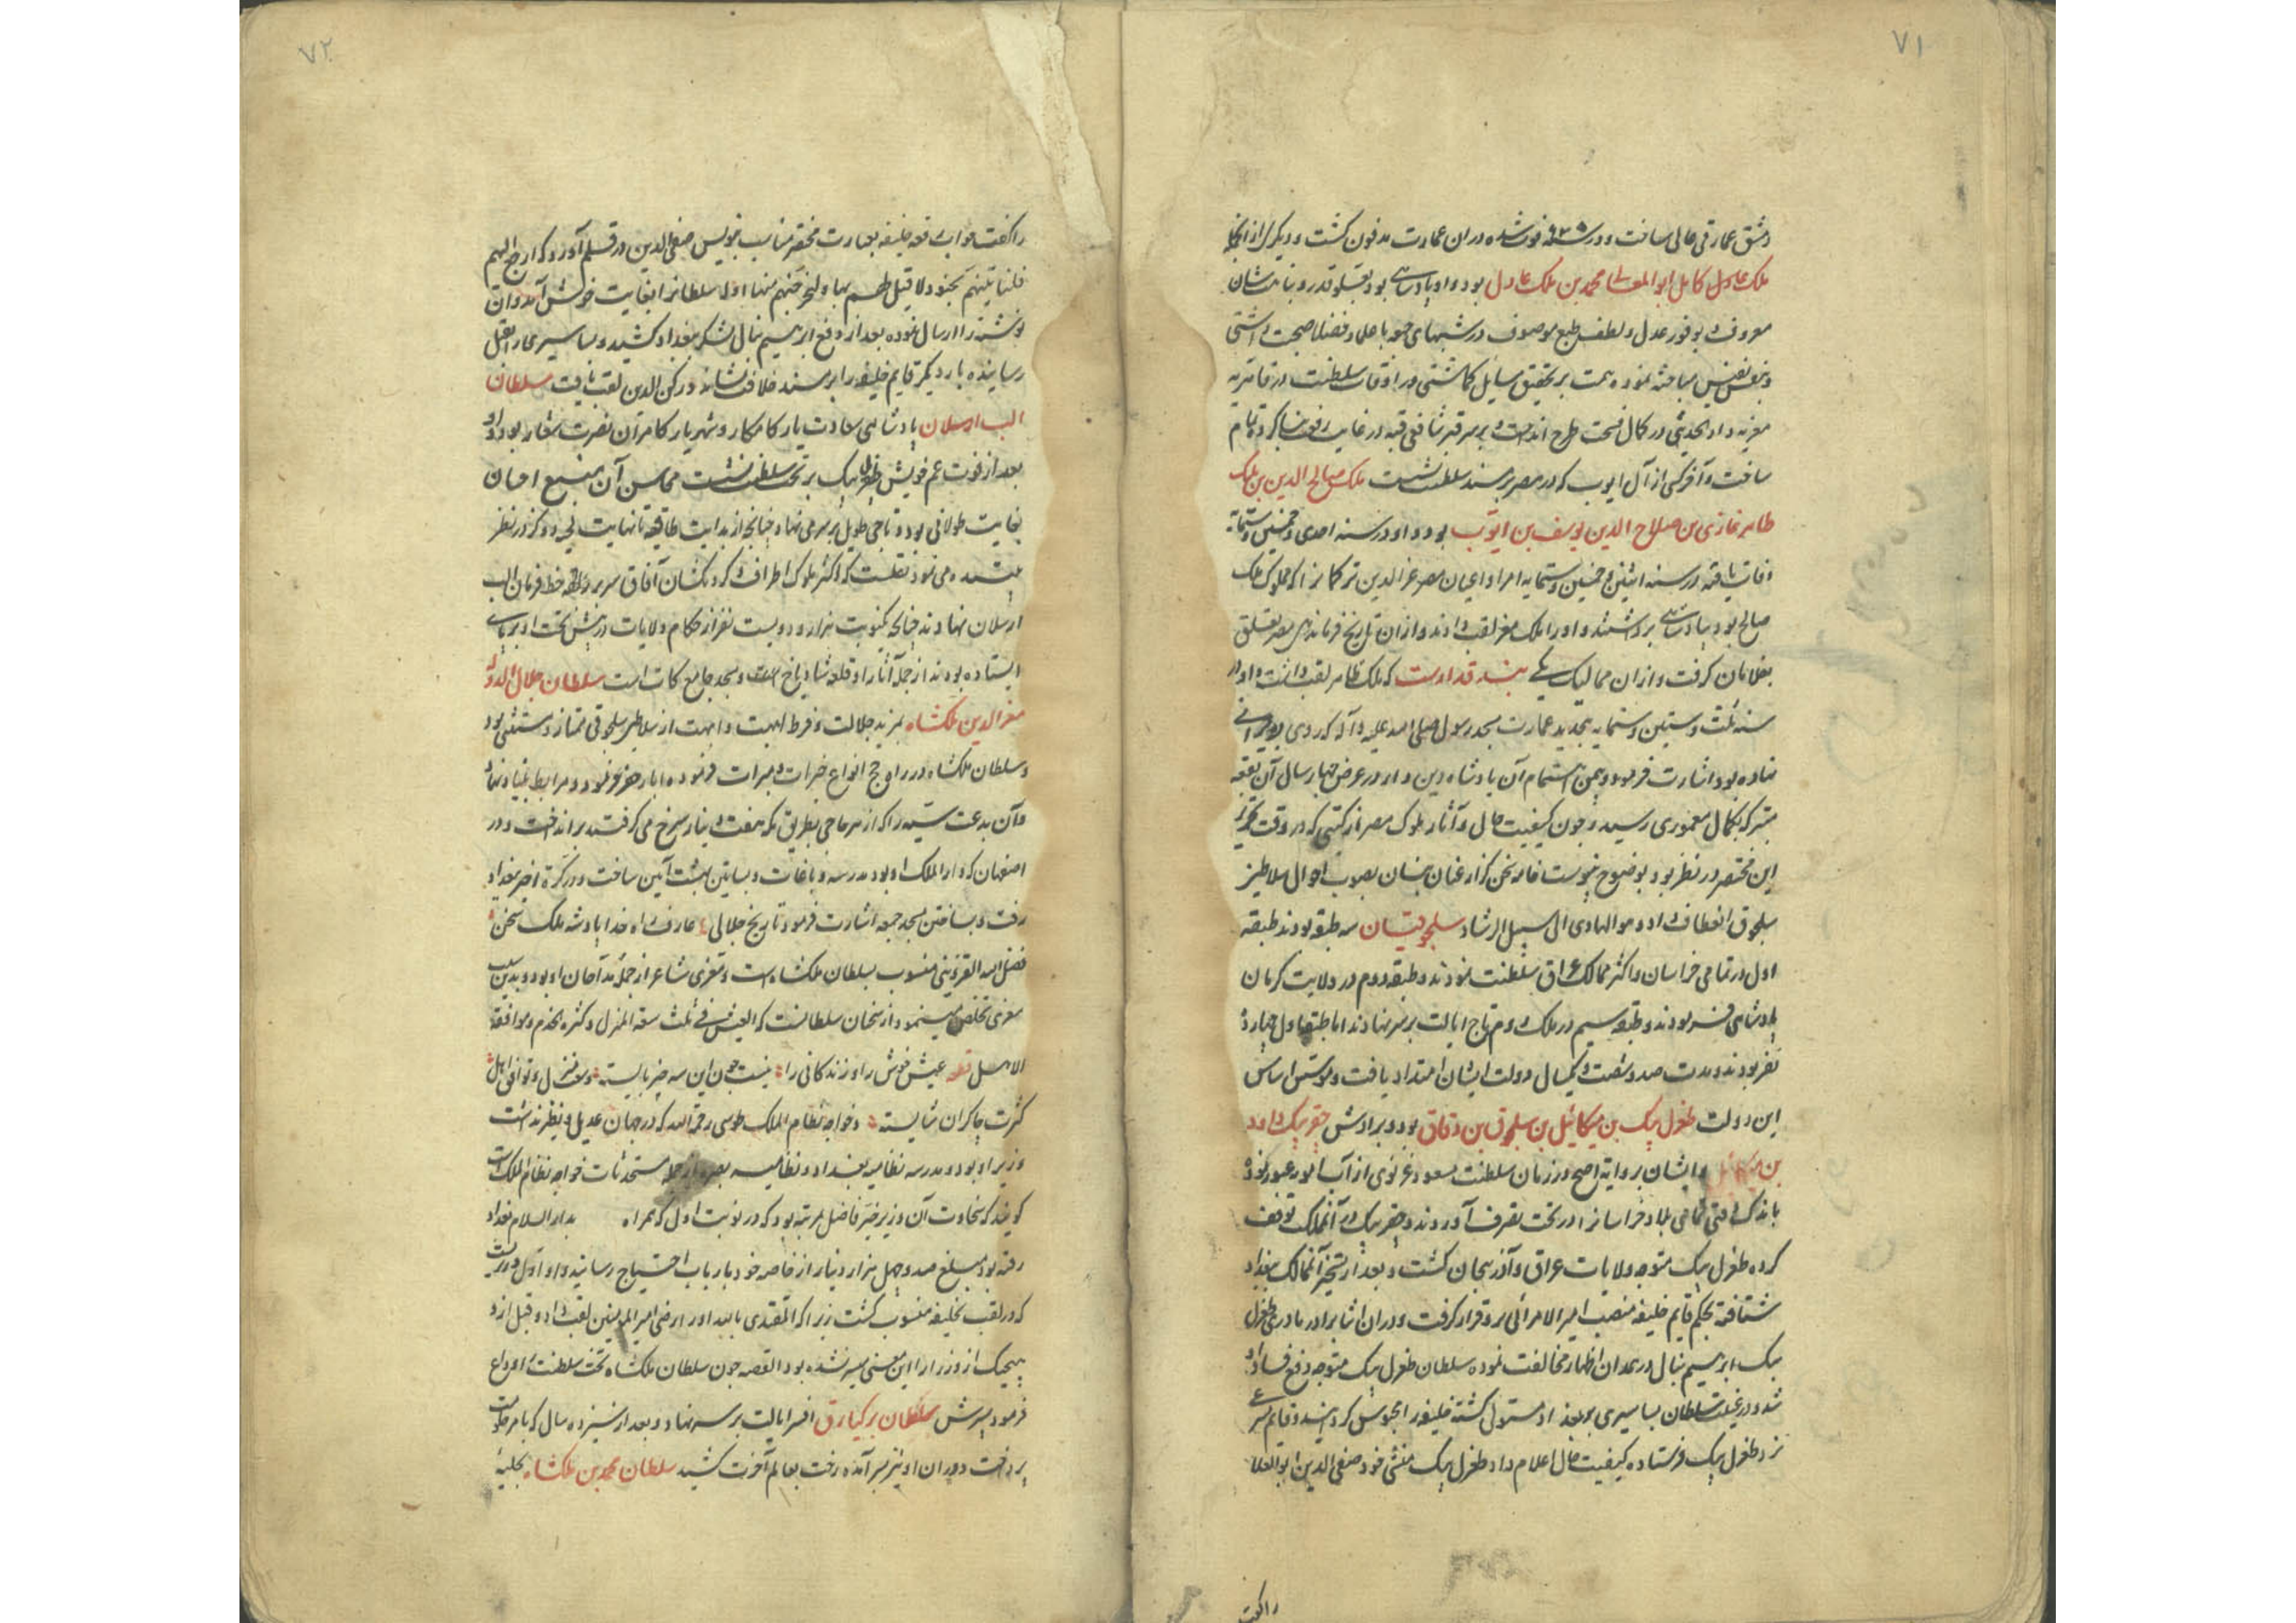 ۷۱
دمشق عمارتی عالی ساخت و در ۶۳۵ فوت شده در ان عمارت مدفون کشت و دیکری از انجا
ملک عادل کامل ابو المعالی محمد بن ملک عادل بود و او پادشاهی بود بعلو قدر و نباهت شان
معروف و بوفور عدل و لطف طبع موصوف در شبهای جمعه با علما و فضلا صحبت داشتی
و بنفس نفیس مباحثه نموده همت بر تحقیق مسایل کماشتی و در اوقات سلطنت در قاهریه
معزیه دار الحدیثی در کمال فسحت طرح انداخت و بر سر قبر شافعی قبه در غایت رفعت بنا کرده تمام
ساخت و آخر کسی از آل ایوب که در مصر بر مسند سلطنت نشست ملک صالح الدین بن ملک
طاهر غازی بن صلاح الدین یوسف بن ایوب بود و او در سنه احدی و خمسین و ستمایة
وفات یافته در سنه اثنین و خمسین و ستمایه امرا و اعیان مصر عز الدین ترکمانرا که مملوک ملک
صالح بود بپادشاهی برداشتند و او را ملک معز لقب دادند و از ان تاریخ فرماندهی مصر تعلق
بغلامان کرفت و از ان ممالیک یکی بندقداوست که ملک ظاهر لقب داشت و او در
سنه ثلث و ستین و ستمایه بتجدید عمارت مسجد رسول صلی الله علیه و آله که روی بویرانی
نهاده بود اشارت فرمود و بیمن اهتمام آن پادشاه دین دار در عرض چهار سال آن بقعه
متبرکه بکمال معموری رسید و چون کیفیت حال و آثار ملوک مصر از کتبی که در وقت تحریر
این مختصر در نظر بود بوضوح پیوست خامه سخن کزار عنان بیان بصوب احوال سلاطین
سلجوق انعطاف داد و هو الهادی الی سبیل الرشاد سلجوقیان سه طبقه بودند طبقه
اول در تمامی خراسان و اکثر ممالک عراق سلطنت نمودند و طبقه دوم در ولایت کرمان
پادشاهی فرمودند و طبقه سیم در ملک روم تاج ایالت بر سر نهادند اما طبقه اول چهارده
نفر بودند و مدت صد و شصت و یکسال دولت ایشان امتداد یافت و موسس اساس
این دولت طغرل بیک بن میکائیل بن سلجوق بن دقاق بود و برادرش جقر بیک داود
بن میکائیل و ایشان بروایة اصح در زمان سلطنت مسعود غزنوی از آب آمویه عبور نموده
باندک فرصتی تمامی بلاد خراسانرا در تحت تصرف آوردند و جقر بیک در آنملک توقف
کرده طغرل بیک متوجه ولایات عراق و آذربیجان کشت و بعد از تسخیر آنممالک ببغداد
شتافته بحکم قایم خلیفه منصب امیر الامرائی برو قرار کرفت و در ان اثنا برادر مادری طغرل
بیک ابراهیم ینال در همدان اظهار مخالفت نموده سلطان طغرل بیک متوجه دفع فساد او
شد و در غیبت سلطان بساسیری بر بغداد مستولی کشته خلیفه را محبوس کردانید و قایم سری
نزد طغرل بیک فرستاده کیفیت حال اعلام داد طغرل بیک منشی خود صفی الدین ابو العلا
را کفت
۷۲
را کفت جواب رقعه خلیفه بعبارت مختصر مناسب بنویس صفی الدین در قلم آورد که ارجع الیهم
فلناتینهم بجنود لا قبل لهم بها و لنخرجنهم منها اذلة سلطانرا بغایت خوش آمد و آن
نوشته را ارسال نموده بعد از دفع ابراهیم ینال لشکر ببغداد کشید و بساسیری را بقتل
رسانیده بار دیکر قایم خلیفه را بر مسند خلافت نشاند و رکن الدین لقب یافت سلطان
الب ارسلان پادشاهی سعادت یار کامکار و شهریار کامران نصرت شعار بود و او
بعد از فوت عم خویش طغرل بیک بر تخت سلطنت نشست محاسن آن منبع احسان
بغایت طولانی بود و تاجی طویل بر سر می نهاد چنانچه از بدایت طاقیه تا نهایت لحیه دو کز در نظر
بیننده می نمود نقلست که اکثر ملوک اطراف و کردنکشان آفاق سر بر خط فرمان الب
ارسلان نهادند چنانچه یکنوبت هزار و دویست نفر از حکام ولایات در پیش تخت او بر پای
ایستاده بودند از جمله آثار او قلعه شادیاخ است و مسجد جامع کات است سلطان جلال الدوله
معز الدین ملکشاه بمزید جلالت و فرط ابهت و امهت از سلاطین سلجوقی ممتاز و مستثنی بود
و سلطان ملکشاه در راه حج انواع خیرات و مبرات فرموده ابار حفر فرمود و مرابط بنیاد نهاد
و آن بدعت سیئه را که از هر حاجی بطریق مکه هفت دینار سرخ می کرفتند برانداخت و در
اصفهان که دار الملک او بود مدرسه و باغات و بساتین بهشت آیین ساخت و در کرة اخیر ببغداد
رفت و بساختن مسجد جمعه اشارت فرمود و تاریخ جلالی عارف اه خدا پادشه ملک سخن
فضل الله القزوینی منسوب بسلطان ملکشاه است و معزی شاعر از جمله مداحان او بود و بدین سبب
معزی تخلص مینمود از سخنان سلطانست که العیش فی ثلث سعة المنزل و کثرة الخدم و موافقة
الاهل قطعه عیش خوش را و زندکانی را نیست جون این سه چیز بایسته وسعت منزل و توافق اهل
کثرت چاکران شایسته و خواجه نظام الملک طوسی رحمة الله که در جهان عدیل و نظیر نداشت
وزیر او بود و مدرسه نظامیه بغداد و نظامیه بصره از جمله مستحدثات خواجه نظام الملک است
کویند که سخاوت آن وزیر خیر فاضل بمرتبه بود که در نوبت اول که همراه بدار السلام بغداد
رفته بود مبلغ صد و چهل هزار دینار از خاصه خود بارباب احتیاج رسانید و او اول وزریست
که در لقب بخلیفه منسوب کشت زیرا که المقتدی بالله او را رضی امیر المومنین لقب داد و قبل ازو
هیچیک از وزرا را این معنی میسر نشده بود القصه جون سلطان ملکشاه تخت سلطنت را وداع
فرمود پسرش سلطان برکیارق افسر ایالت بر سر نهاد و بعد از سیزده سال که بامر حکومت
پرداخت دوران او نیز بسر آمده رخت بعالم آخرت کشید سلطان محمد بن ملکشاه بحلیهٔ